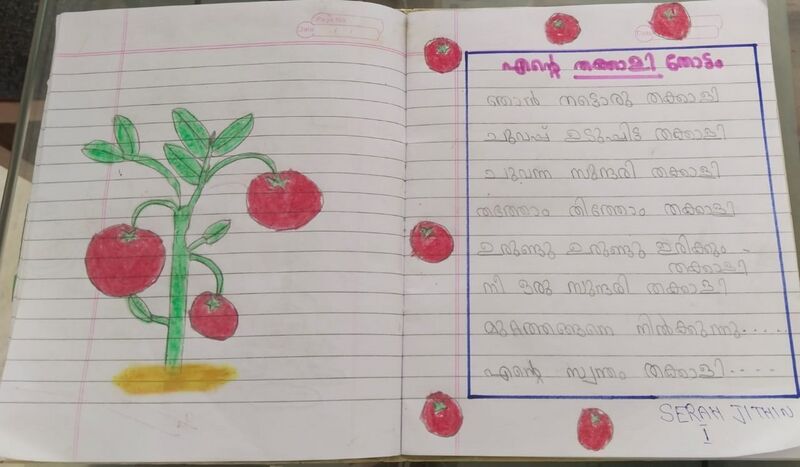 Page No.
Date
എന്റെ തക്കാളി തോട്ടം
ഞാൻ നട്ടൊരു തക്കാളി
ചുവപ്പ് ഉടുപ്പിട്ട തക്കാളി
ചുവന്ന സുന്ദരി തക്കാളി
തത്തോം തിത്തോം തക്കാളി
ഉരുണ്ടു ഉരുണ്ടു ഇരിക്കും -
തക്കാളി
നീ ഒരു സുന്ദരി തക്കാളി
നിൽക്കുന്നു.....
എന്റെ സ്വന്തം തക്കാളി....
SERAH JITHIN
I